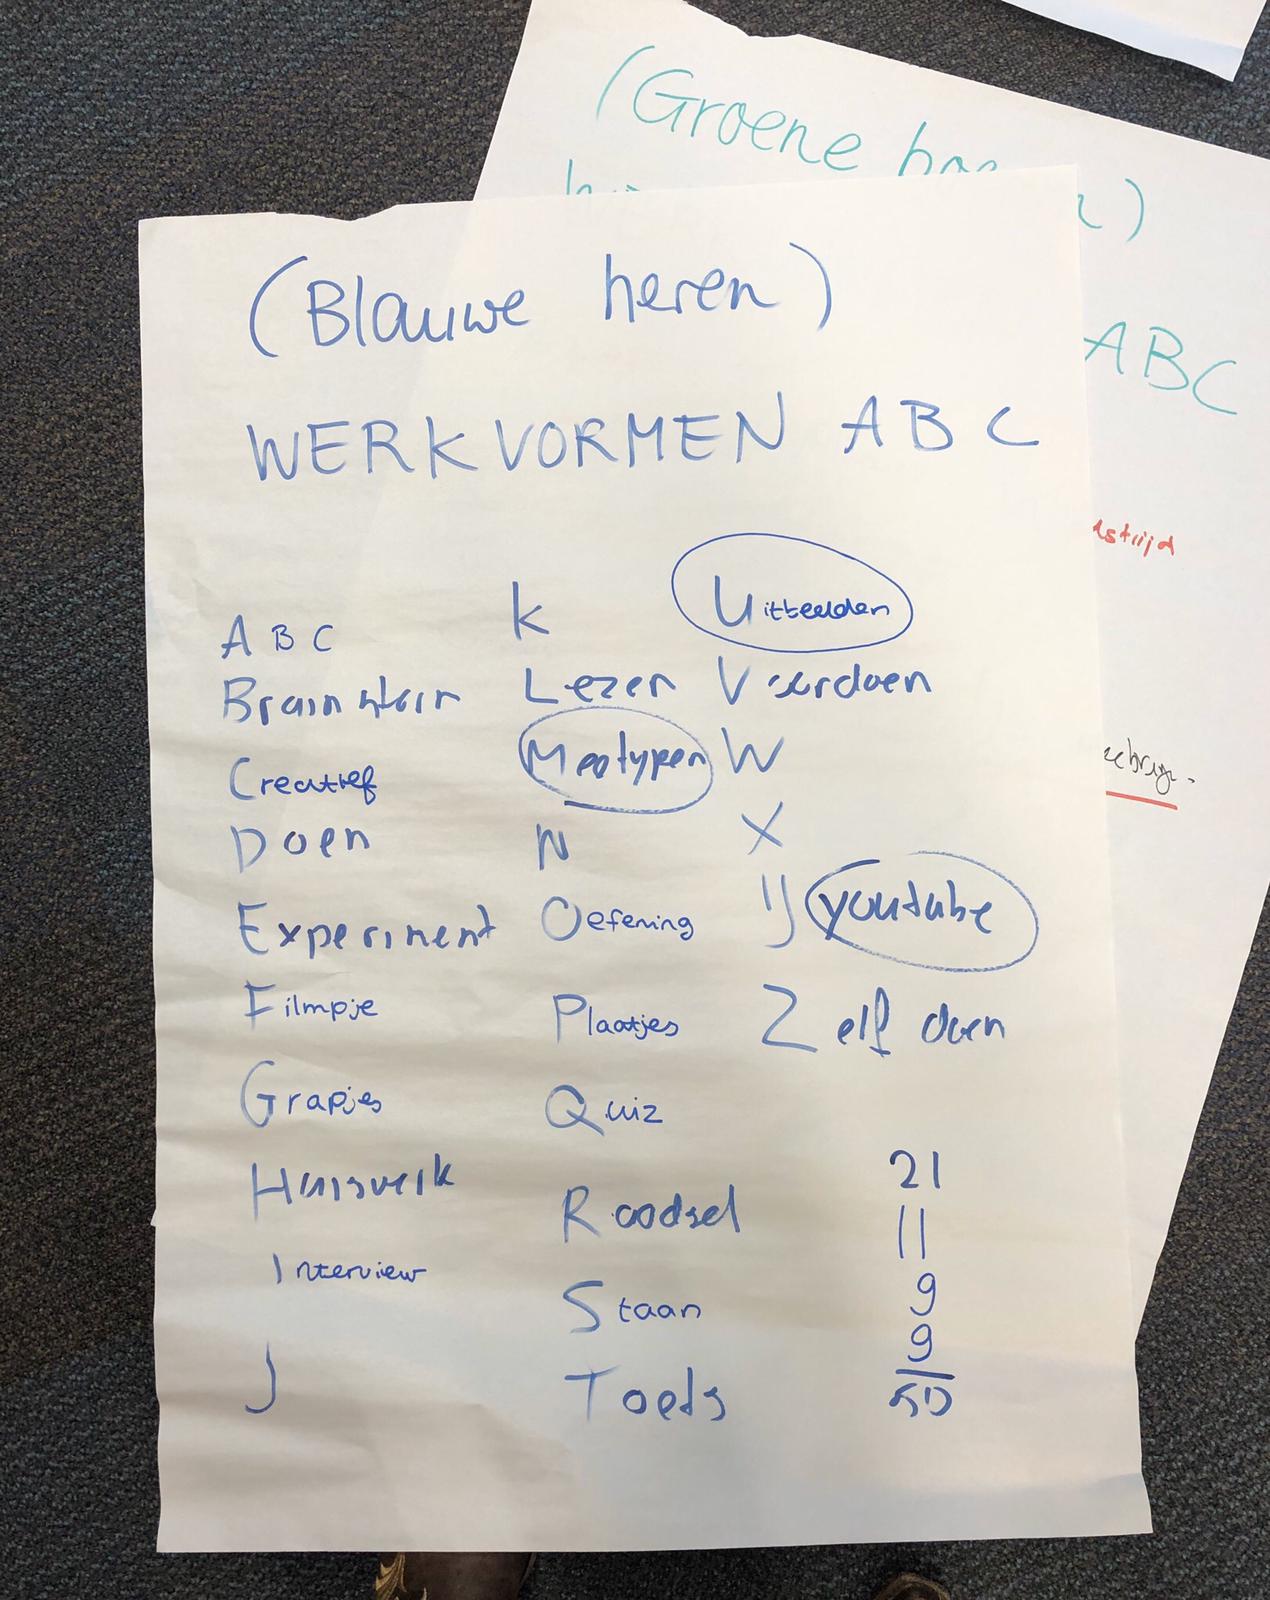 (Groene
)
ABC
(Blauwe heren)
WERKVORMEN ABC
ABC
Brainstorm
Creatief
Doen
Experiment
Filmpje
Grapjes
Huiswerk
Interview
J
K
Lezen
Meetypen
N
Oefening
Plaatjes
Quiz
Raadsel
Staan
Toets
Uitbeelden
Voordoen
W
X
IJ youtube
Zelf doen
21
11
9
9
50